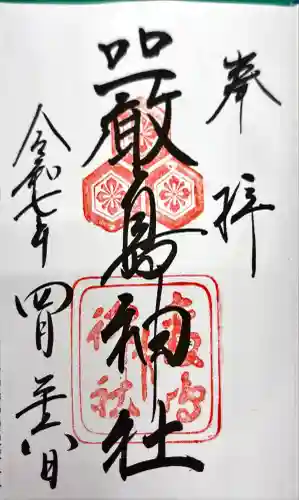 奉拝
嚴島神社
嚴島
神社
令和七年四月廿八日